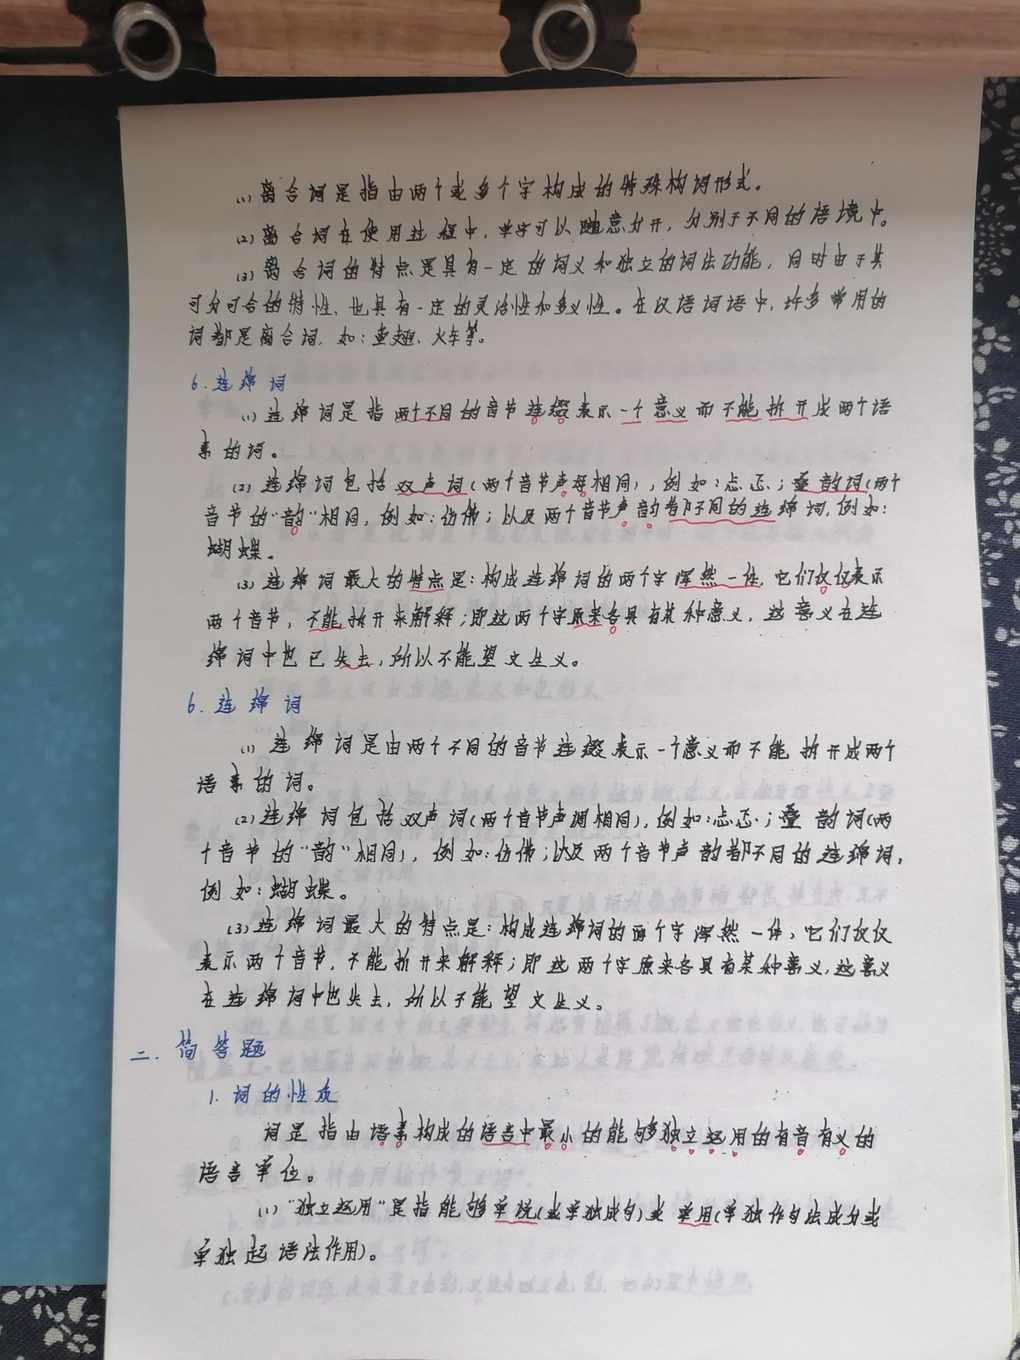 (1)离合词是指由两个或多个字构成的特殊构词形式。
(2)离合词在使用过程中,单字可以随意分开,分别于不同的语境中。
(3)离合词的特点是具有一定的词义和独立的词法功能,同时由于其
可分可合的特性,也具有一定的灵活性和多义性。在汉语词语中,许多常用的
词都是离合词,如:童趣、火车等。
6.连绵词
(1)连绵词是指两个不同的音节连缀表示一个意义而不能拆开成两个语
素的词。
(2)连绵词包括双声词(两个音节声母相同),例如:忐忑;叠韵词(两个
音节的“韵”相同,例如:仿佛;以及两个音节声韵都不同的连绵词,例如:
蝴蝶。
(3)连绵词最大的特点是:构成连绵词的两个字浑然一体,它们仅仅表示
两个音节,不能拆开来解释;即这两个字原来各具有某种意义,这意义在连
绵词中也已失去,所以不能望文生义。
6.连绵词
(1)连绵词是由两个不同的音节连缀表示一个意义而不能拆开成两个
语素的词。
(2)连绵词包括双声词(两个音节声调相同),例如:忐忑;叠韵词(两
个音节的“韵”相同),例如:仿佛;以及两个音节声韵都不同的连绵词,
例如:蝴蝶。
(3)连绵词最大的特点是:构成连绵词的两个字浑然一体,它们仅仅
表示两个音节,不能拆开来解释;即这两个字原来各具有某种意义,这意义
在连绵词中也失去,所以不能望文生义。
二.简答题
1.词的性质
词是指由语素构成的语言中最小的能够独立运用的有音有义的
语言单位。
(1)“独立运用”是指能够单说(或单独成句)或单用(单独作句法成分或
单独起语法作用)。